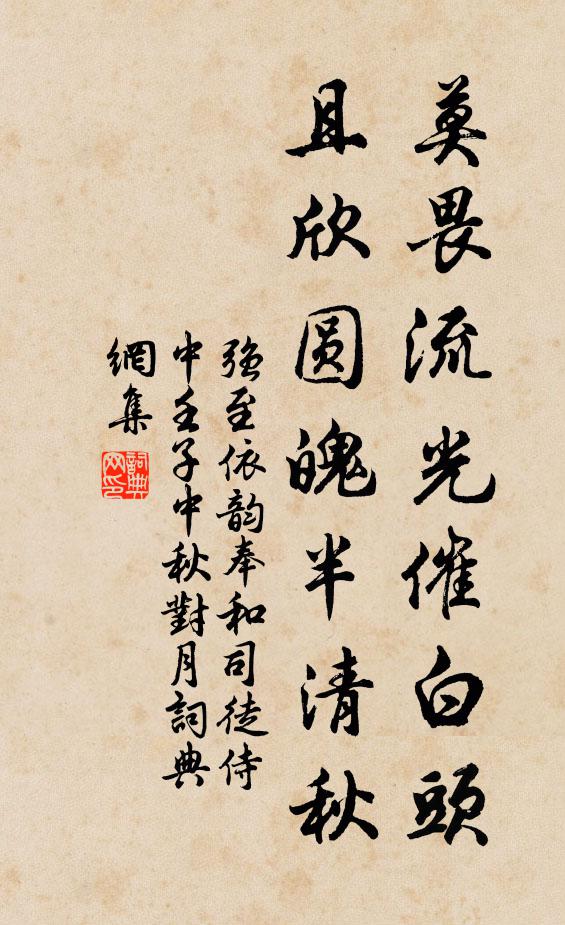 莫畏流光催白頭
且欣圓魄半清秋
強至依韵奉和司徒侍
中壬子中秋對月詞典
網集
詞典
网印